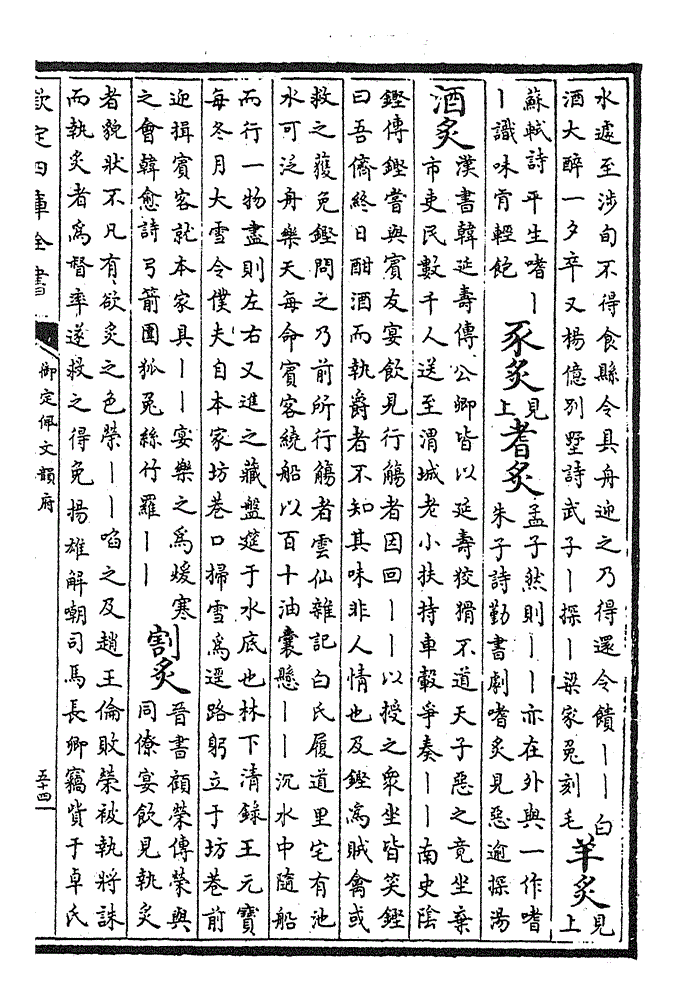 水遽至涉旬不得食縣令具舟迎之乃得還令饋丨丨白
酒大醉一夕卒又楊億別墅詩武子丨探丨梁家兔刻毛
羊炙
見上
蘇軾詩平生嗜丨
丨識味肯輕飽
豕炙
見上
耆炙
孟子然則丨丨亦在外與一作嗜
朱子詩勤書劇嗜炙見惡逾探湯
酒炙
漢書韓延壽傳公卿皆以延壽狡猾不道天子惡之竟坐棄
市吏民數千人送至渭城老小扶持車轂爭奏丨丨南史陰
鏗傳鏗嘗與賓友宴飲見行觴者因回丨丨以授之衆坐皆笑鏗
曰吾儕終日酣酒而執爵者不知其味非人情也及鏗爲賊禽或
救之獲免鏗問之乃前所行觴者雲仙雜記白氏履道里宅有池
水可泛舟樂天每命賓客繞船以百十油囊懸丨丨沉水中隨船
而行一物盡則左右又進之藏盤筵于水底也林下清録王元寶
每冬月大雪令僕夫自本家坊巷口掃雪爲逕路躬立于坊巷前
迎揖賓客就本家具丨丨宴樂之爲煖寒
之會韓愈詩弓箭圍狐兔絲竹羅丨丨
割炙
晉書顧榮傳榮與
同僚宴飲見執炙
者貌狀不凡有欲炙之色榮丨丨啗之及趙王倫敗榮被執將誅
而執炙者爲督率遂救之得免揚雄解嘲司馬長卿竊貲于卓氏
欽定四庫全書
御定佩文韻府
五十四